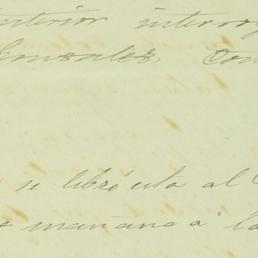 interior interrog
Gonzales, con
se libró esta al
mañana á la